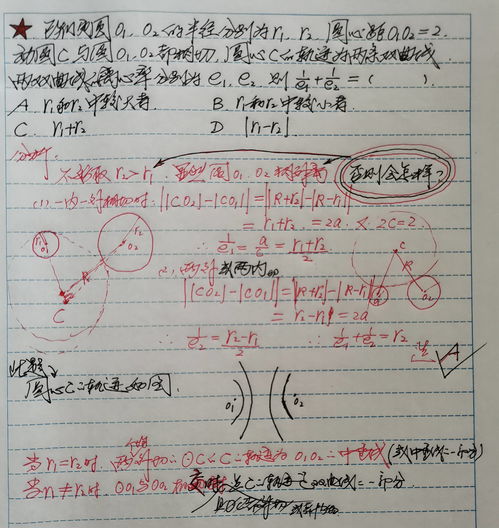 ★ 已知两圆O₁,O₂的半径分别为r₁,r₂,圆心距O₁O₂=2.
动圆C与圆O₁,O₂都相切,圆心C的轨迹为两条双曲线,
两双曲线离心率分别为e₁,e₂ 则 1/e₁+1/e₂=( ).
A r₁和r₂中较大者. B r₁和r₂中较小者.
C. r₁+r₂ D |r₁-r₂|.
分析:
不妨取r₂>r₁. 圆O₁,O₂相离 否则会怎样?
(1)一内一外相切时. ||CO₂|-|CO₁||=||R+r₂|-|R-r₁||
=r₁+r₂=2a.<2c=2.
∴ 1/e₁=a/c=(r₁+r₂)/2
r₁ O₁ r₂ O₂ R C
(2)两外或两内
||CO₂|-|CO₁||=||R+r₂|-|R-r₁||
=r₂-r₁=2a
∴ 1/e₂=(r₂-r₁)/2 ∴ 1/e₁+1/e₂=r₂
C R O₁ O₂
选 A
此题
圆心C∴轨迹如图.
O₁ O₂
当r₁=r₂时 两 ⊙C 轨迹为O₁O₂∴中垂线(或中垂线一部分
当r₁≠r₂时 ⊙O₁与⊙O₂ 是C∴轨迹 双曲线一部分.